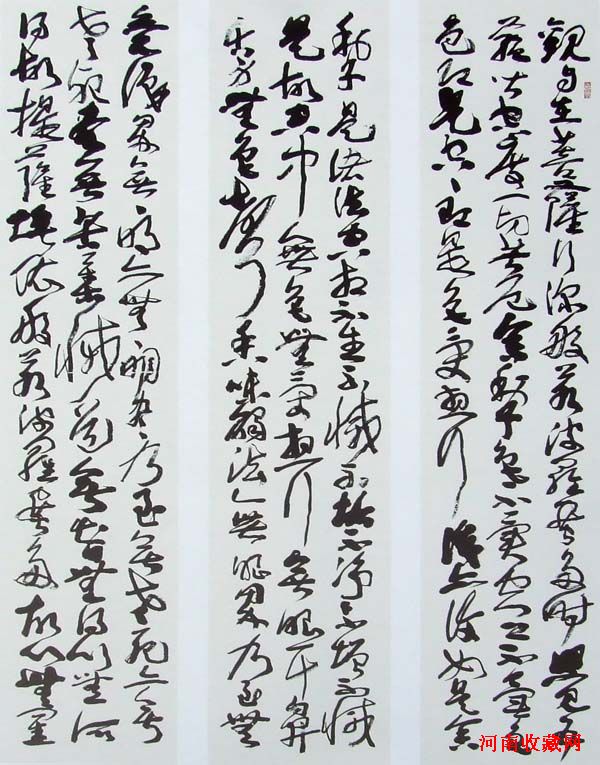 觀自在菩薩行深般若波羅蜜多時照見五
蘊皆空度一切苦厄舍利子色不異空空不異色
色即是空空即是色受想行識亦復如是舍
利子是諸法空相不生不滅不垢不淨不增不減
是故空中無色無受想行無眼耳鼻
舌身無色聲香味觸法無眼界乃至無
意識界無無明亦無無明盡乃至無老死亦無
老死盡無苦集滅道無智無得以無所
得故提薩埵依般若波羅蜜多故心無罣
河南收藏网